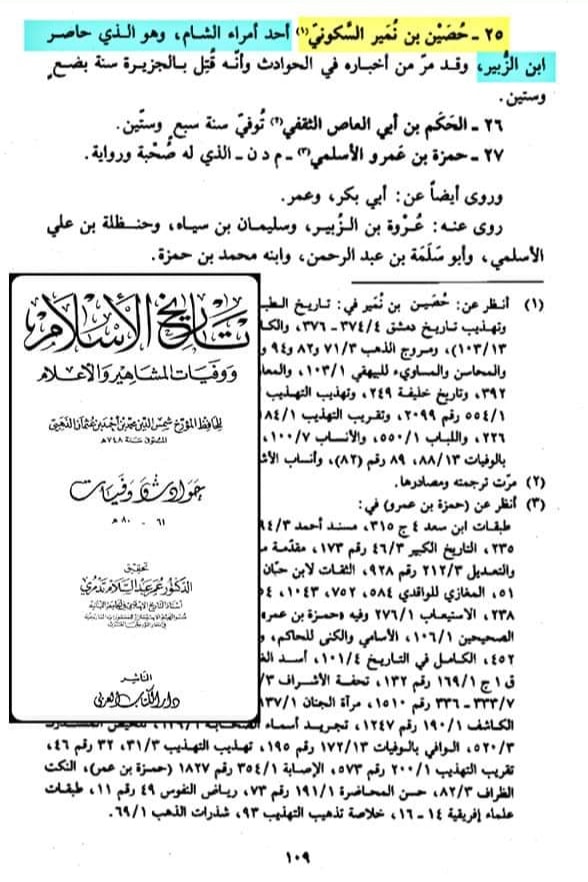 ٢٥ - حُصَيْن بن نُمَير السَّكونيّ(١) أحد أمراء الشام، وهو الذي حاصر
ابن الزُّبير، وقد مرّ من أخباره في الحوادث وأنّه قُتِل بالجزيرة سنة بضعٍ
وستين.
٢٦ - الحَكَم بن أبي العاص الثقفي(٢) تُوفيّ سنة سبعٍ وستّين.
٢٧ - حمزة بن عَمرو الأسلمي(٣) - م د ن - الذي له صُحْبة ورواية.
وروى أيضاً عن: أبي بكر، وعمر.
روى عنه: عُرْوة بن الزُّبير، وسليمان بن سياه، وحنظلة بن علي
الأسلمي، وأبو سَلَمَة بن عبد الرحمن، وابنه محمد بن حمزة.
(١) أنظر عن: حُصَين بن نُمَير في: تاريخ
وتهذيب تاريخ دمشق ٣٧٤/٤ - ٣٧٦،
١٠٣/١٣)، ومروج الذهب ٧١/٣ و٨٢ و٩٤
والمحاسن والمساوىء للبيهقي ١٠٣/١،
٣٩٢، وتاريخ خليفة ٢٤٩، وتهذيب التهذيب
٥٥٤/١ رقم ٢٠٩٩، وتقريب التهذيب
٢٢٦، واللباب ٥٥٠/١، والأنساب ١٠٠/٧،
بالوفيات ٨٨/١٣، ٨٩ رقم (٨٢)، وأنساب
(٢) مرّت ترجمته ومصادرها.
(٣) أنظر عن (حمزة بن عمرو) في:
طبقات ابن سعد ٤ ج ٣١٥، مسند أحمد
٢٣٥، التاريخ الكبير ٤٦/٣ رقم ١٧٣، مقدّمة
والتعديل ٢١٢/٣ رقم ٩٢٨، الثقات لابن حبّان
٥١، المغازي للواقدي ٥٨٤، ٧٥٢، ١٠٤٣،
٢٣٨، الاستيعاب ٢٧٦/١ وفيه «حمزة بن عمر»
الصحيحين ١٠٦/١، الأسامي والكنى للحاكم،
٤٥٢، الكامل في التاريخ ١٠١/٤، أسد
ق ١ ج ١٦٩/١ رقم ١٣٢، تحفة الأشراف
٣٣٣/٧ - ٣٣٦ رقم ١٥١٠، مرآة الجنان
الكاشف ١٩٠/١ رقم ١٢٤٧، تجريد أسماء
٥٢٠/٣، الوافي بالوفيات ١٧٢/١٣ رقم ١٩٥، تهذيب التهذيب ٣١/٣، ٣٢ رقم ٤٦،
تقريب التهذيب ٢٠٠/١ رقم ٥٧٣، الإصابة ٣٥٤/١ رقم ١٨٢٧ (حمزة بن عمر)، النكت
الظراف ٨٢/٣، حسن المحاضرة ١٩١/١ رقم ٧٣، رياض النفوس ٤٩ رقم ١١، طبقات
علماء إفريقية ١٤ - ١٦، خلاصة تذهيب التهذيب ٩٣، شذرات الذهب ٦٩/١.
١٠٩
تاريخ الإسلام
ووفيات المشاهير والأعلام
للحافظ المؤرخ شمس الدين محمد بن أحمد بن عثمان الذهبي
المتوفى سنة ٧٤٨هـ
حوادث ووفيات
٦١ - ٨٠ هـ
تحقيق
الدكتور عمر عبد السلام تدمري
الناشر
دار الكتاب العربي